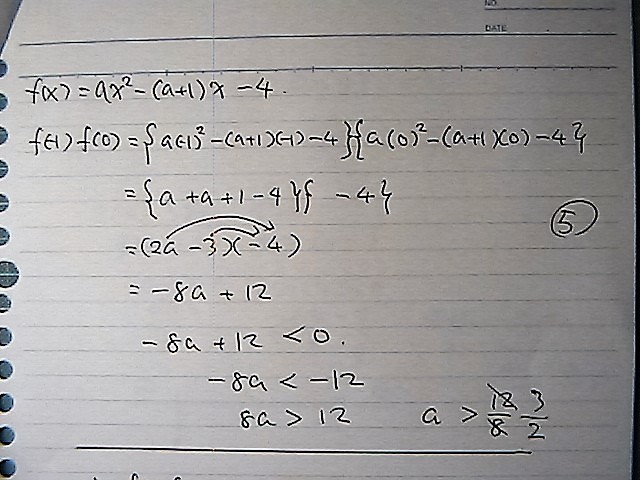 NO.
DATE
f(x) = ax² - (a+1)x - 4.
f(-1) f(0) = {a(-1)² - (a+1)(-1) - 4}{a(0)² - (a+1)(0) - 4}
= {a + a + 1 - 4}{ - 4}
⑤
= (2a - 3)(-4)
= -8a + 12
-8a + 12 < 0.
-8a < -12
8a > 12 a > 12/8 3/2